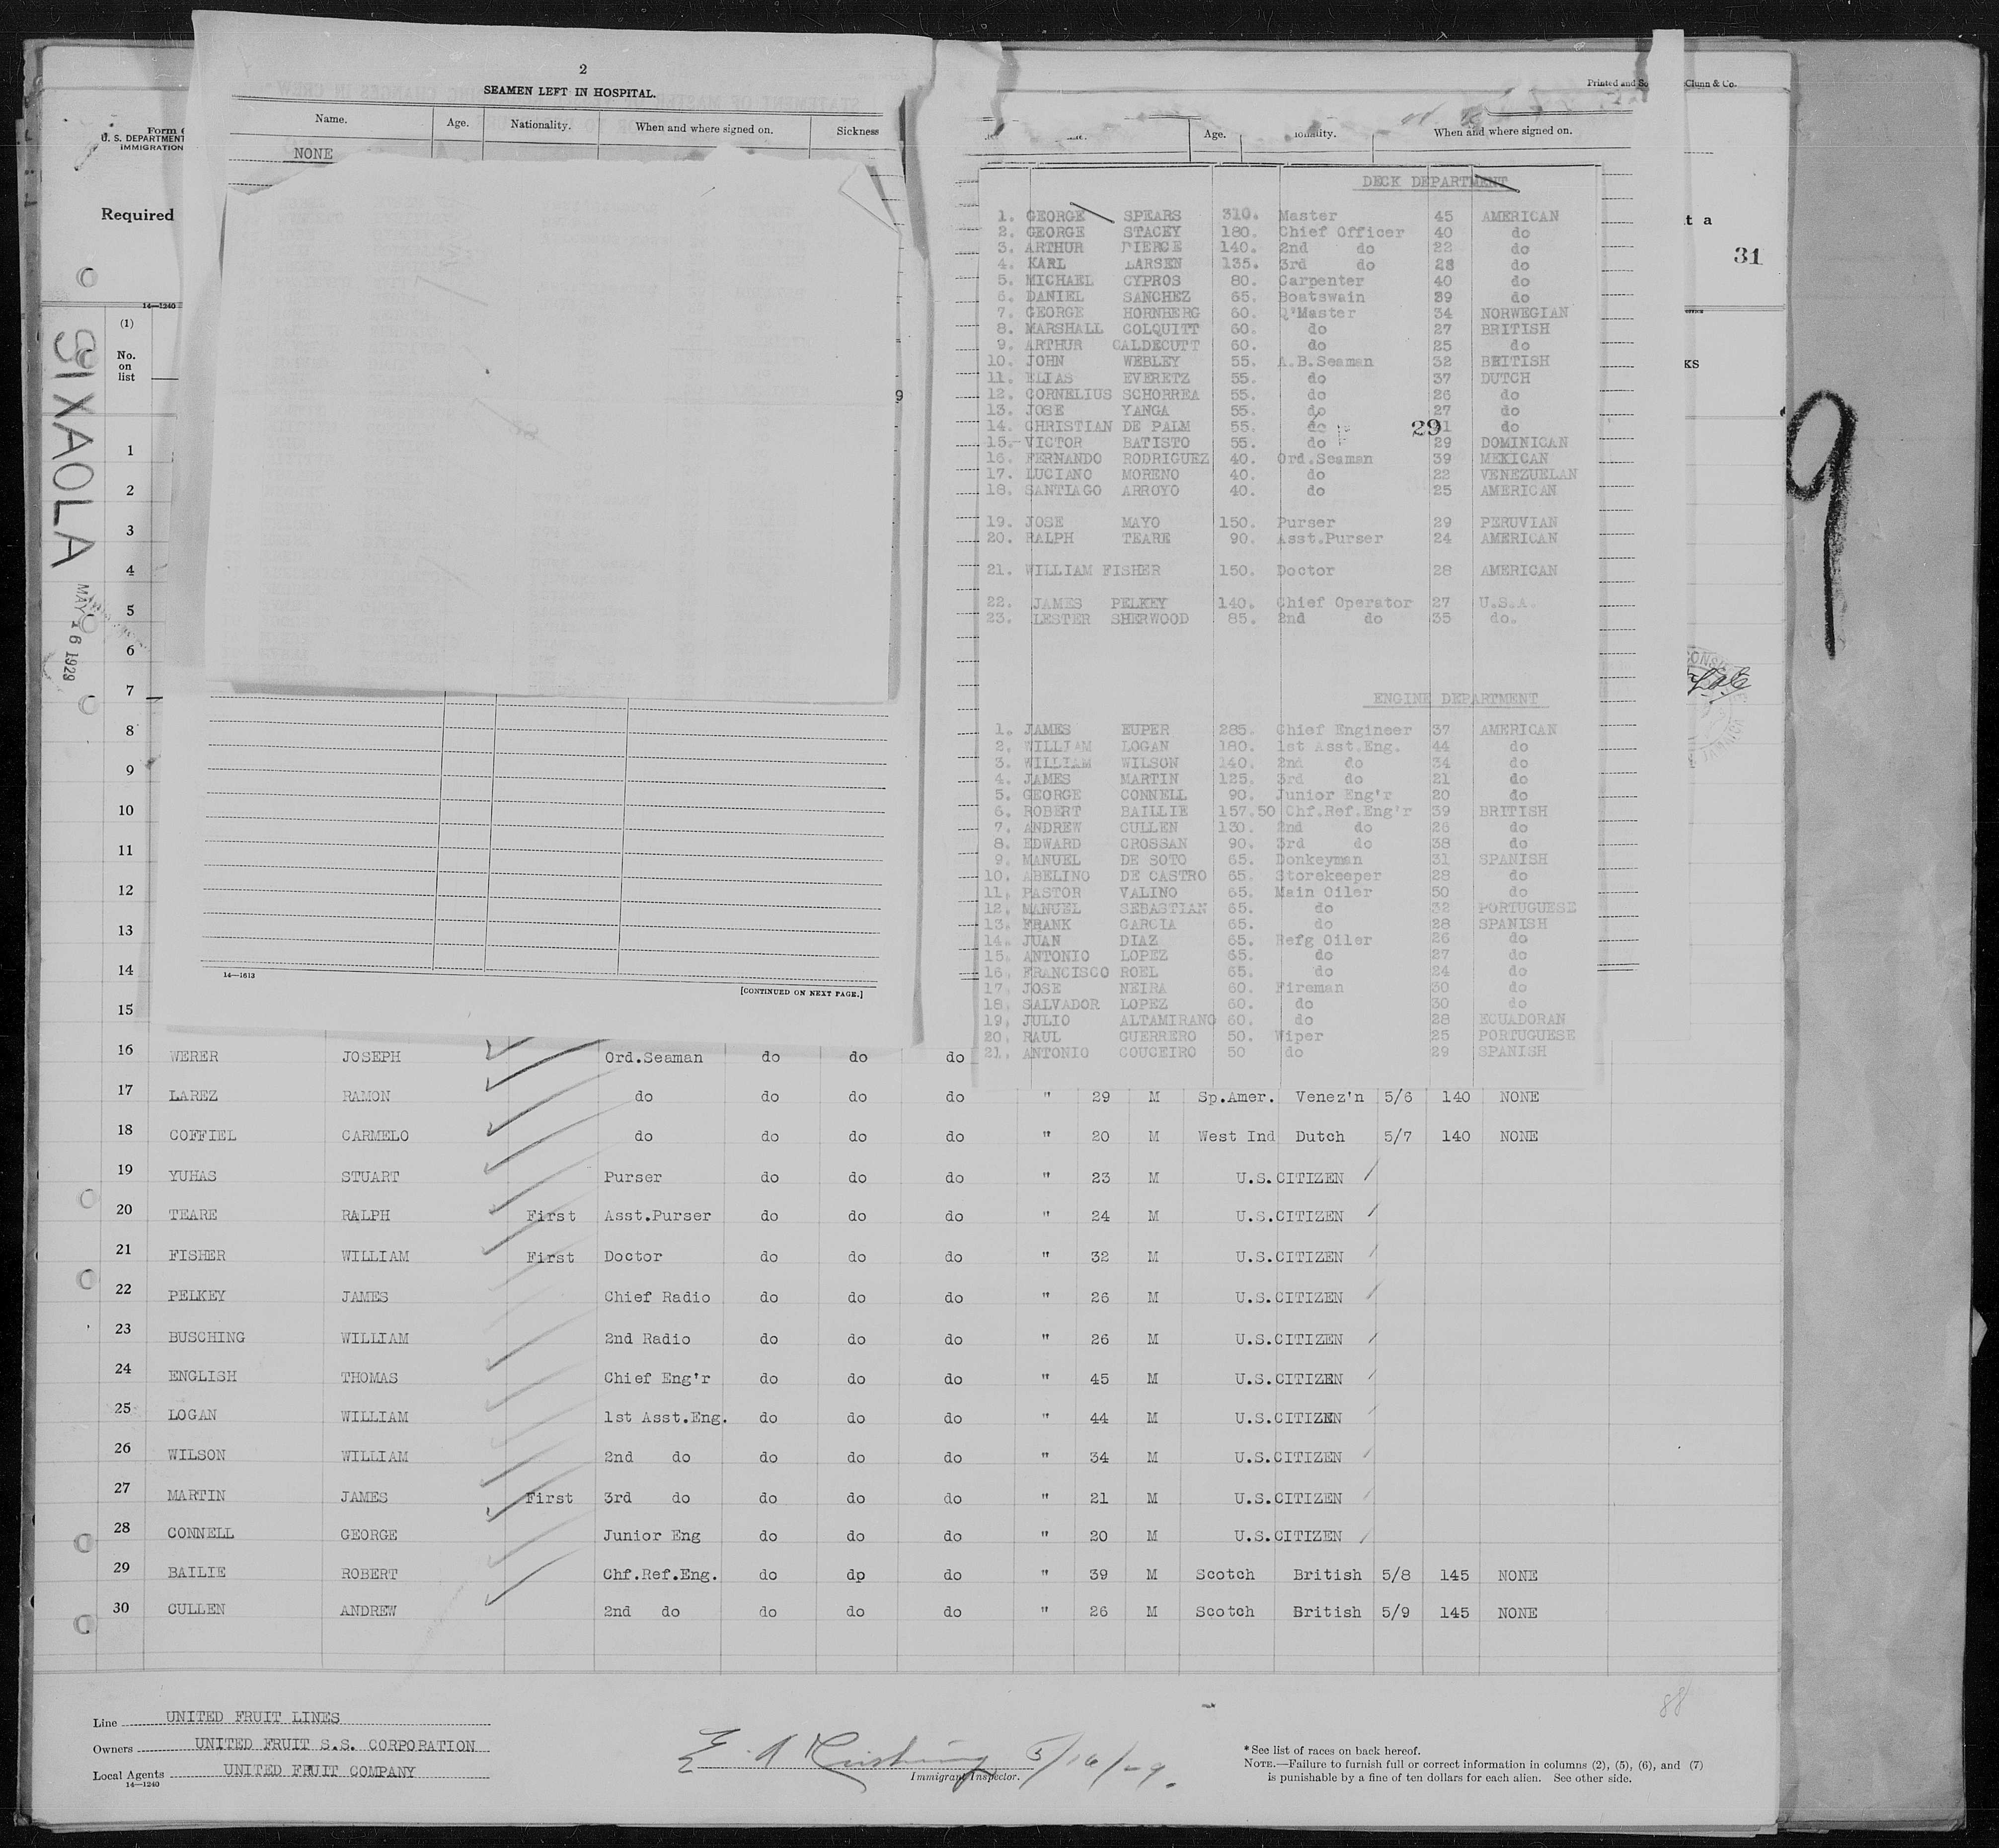 2
SEAMEN LEFT IN HOSPITAL.
Name. Age. Nationality. When and where signed on. Sickness
NONE
[CONTINUED ON NEXT PAGE.]
14—1613
Printed and So Clunn & Co.
Age. ionality. When and where signed on.
Form
U. S. DEPARTMENT
IMMIGRATION
Required
t a
31
14—1240
(1)
No.
on
list
KS
9
SIXAOLA
MAY 16 1929
9
DECK DEPARTMENT
1. GEORGE SPEARS 310. Master 45 AMERICAN
2. GEORGE STACEY 180. Chief Officer 40 do
3. ARTHUR PIERCE 140. 2nd do 22 do
4. KARL LARSEN 135. 3rd do 28 do
5. MICHAEL CYPROS 80. Carpenter 40 do
6. DANIEL SANCHEZ 65. Boatswain 39 do
7. GEORGE HORNBERG 60. Q'Master 34 NORWEGIAN
8. MARSHALL COLQUITT 60. do 27 BRITISH
9. ARTHUR CALDECUTT 60. do 25 do
10. JOHN WEBLEY 55. A.B.Seaman 32 BRITISH
11. ELIAS EVERETZ 55. do 37 DUTCH
12. CORNELIUS SCHORREA 55. do 26 do
13. JOSE YANGA 55. do 27 do
14. CHRISTIAN DE PALM 55. do 1 do
29
15. VICTOR BATISTO 55. do 29 DOMINICAN
16. FERNANDO RODRIGUEZ 40. Ord.Seaman 39 MEXICAN
17. LUCIANO MORENO 40. do 22 VENEZUELAN
18. SANTIAGO ARROYO 40. do 25 AMERICAN
19. JOSE MAYO 150. Purser 29 PERUVIAN
20. RALPH TEARE 90. Asst.Purser 24 AMERICAN
21. WILLIAM FISHER 150. Doctor 28 AMERICAN
22. JAMES PELKEY 140. Chief Operator 27 U.S.A.
23. LESTER SHERWOOD 85. 2nd do 35 do.
ENGINE DEPARTMENT
1. JAMES EUPER 285. Chief Engineer 37 AMERICAN
2. WILLIAM LOGAN 180. 1st Asst.Eng. 44 do
3. WILLIAM WILSON 140. 2nd do 34 do
4. JAMES MARTIN 125. 3rd do 21 do
5. GEORGE CONNELL 90. Junior Eng'r 20 do
6. ROBERT BAILLIE 157.50 Chf.Ref.Eng'r 39 BRITISH
7. ANDREW CULLEN 130. 2nd do 26 do
8. EDWARD CROSSAN 90. 3rd do 38 do
9. MANUEL DE SOTO 65. Donkeyman 31 SPANISH
10. ABELINO DE CASTRO 65. Storekeeper 28 do
11. PASTOR VALINO 65. Main Oiler 50 do
12. MANUEL SEBASTIAN 65. do 32 PORTUGUESE
13. FRANK GARCIA 65. do 28 SPANISH
14. JUAN DIAZ 65. Refg Oiler 26 do
15. ANTONIO LOPEZ 65. do 27 do
16. FRANCISCO ROEL 65. do 24 do
17. JOSE NEIRA 60. Fireman 30 do
18. SALVADOR LOPEZ 60. do 30 do
19. JULIO ALTAMIRANO 60. do 28 ECUADORAN
20. RAUL GUERRERO 50. Wiper 25 PORTUGUESE
21. ANTONIO COUCEIRO 50 do 29 SPANISH
1
2
3
4
5
6
7
8
9
10
11
12
13
14
15
16 WERER JOSEPH Ord.Seaman do do do
17 LAREZ RAMON do do do do " 29 M Sp.Amer. Venez'n 5/6 140 NONE
18 COFFIEL CARMELO do do do do " 20 M West Ind Dutch 5/7 140 NONE
19 YUHAS STUART Purser do do do " 23 M U.S.CITIZEN
20 TEARE RALPH First Asst.Purser do do do " 24 M U.S.CITIZEN
21 FISHER WILLIAM First Doctor do do do " 32 M U.S.CITIZEN
22 PELKEY JAMES Chief Radio do do do " 26 M U.S.CITIZEN
23 BUSCHING WILLIAM 2nd Radio do do do " 26 M U.S.CITIZEN
24 ENGLISH THOMAS Chief Eng'r do do do " 45 M U.S.CITIZEN
25 LOGAN WILLIAM 1st Asst.Eng. do do do " 44 M U.S.CITIZEN
26 WILSON WILLIAM 2nd do do do do " 34 M U.S.CITIZEN
27 MARTIN JAMES First 3rd do do do do " 21 M U.S.CITIZEN
28 CONNELL GEORGE Junior Eng do do do " 20 M U.S.CITIZEN
29 BAILIE ROBERT Chf.Ref.Eng. do dp do " 39 M Scotch British 5/8 145 NONE
30 CULLEN ANDREW 2nd do do do do " 26 M Scotch British 5/9 145 NONE
88
Line UNITED FRUIT LINES
Owners UNITED FRUIT S.S. CORPORATION
Local Agents UNITED FRUIT COMPANY
14—1240
E. A Cushing 5/16/29.
Immigrant Inspector.
*See list of races on back hereof.
NOTE.—Failure to furnish full or correct information in columns (2), (5), (6), and (7)
is punishable by a fine of ten dollars for each alien. See other side.